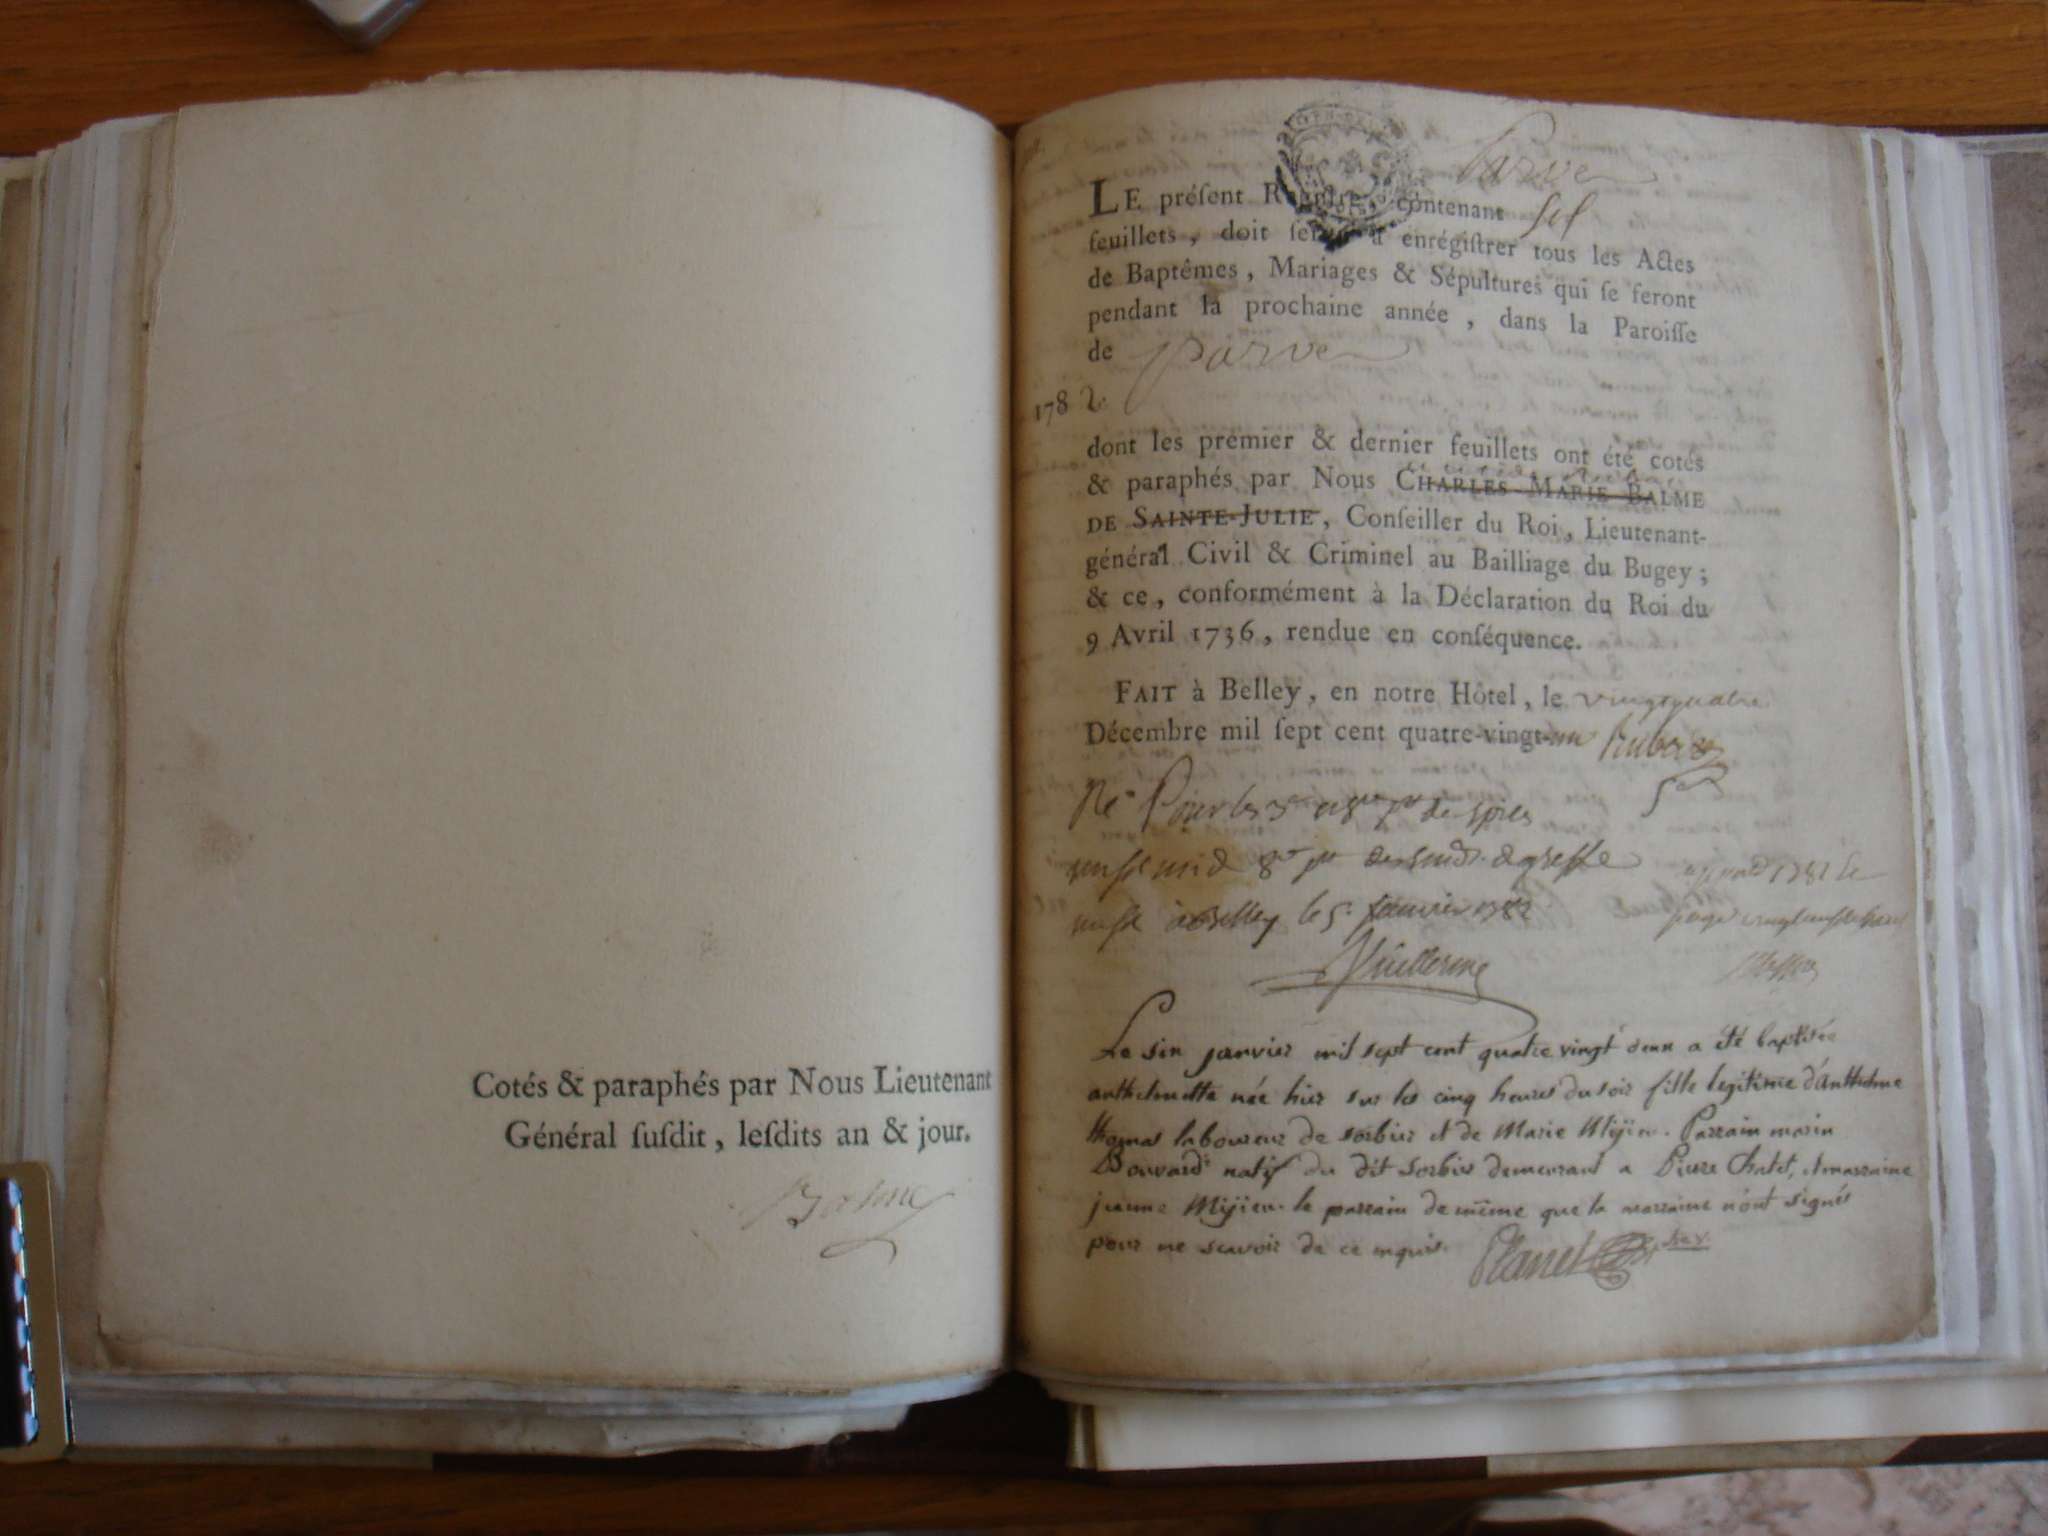 Cotés & paraphés par Nous Lieutenant
Général ſuſdit, leſdits an & jour.
Balme
Parve
LE préſent Regiſtre, contenant ſix
feuillets, doit ſervir à enrégiſtrer tous les Actes
de Baptêmes, Mariages & Sépultures qui ſe feront
pendant la prochaine année, dans la Paroiſſe
de parve
1782.
dont les premier & dernier feuillets ont été cotés
& paraphés par Nous CHARLES MARIE BALME
DE SAINTE-JULIE, Conſeiller du Roi, Lieutenant-
général Civil & Criminel au Bailliage du Bugey;
& ce, conformément à la Déclaration du Roi du
9 Avril 1736, rendue en conſéquence.
FAIT à Belley, en notre Hôtel, le vingtquatre
Décembre mil ſept cent quatre-vingt-un
de greffe
à Belley le 5e janvier 1782
Le six janvier mil sept cent quatre vingt deux a été baptisée
anthelmette née hier sur les cinq heures du soir fille legitime d'anthelme
thomas laboureur de sorbier et de Marie Mijieu. Parrain marin
Bouvard natif du dit Sorbier demeurant a Pierre Chatel, et marraine
jeanne Mijieu. le parrain de même que la marraine n'ont signés
pour ne scavoir de ce enquis. Planet